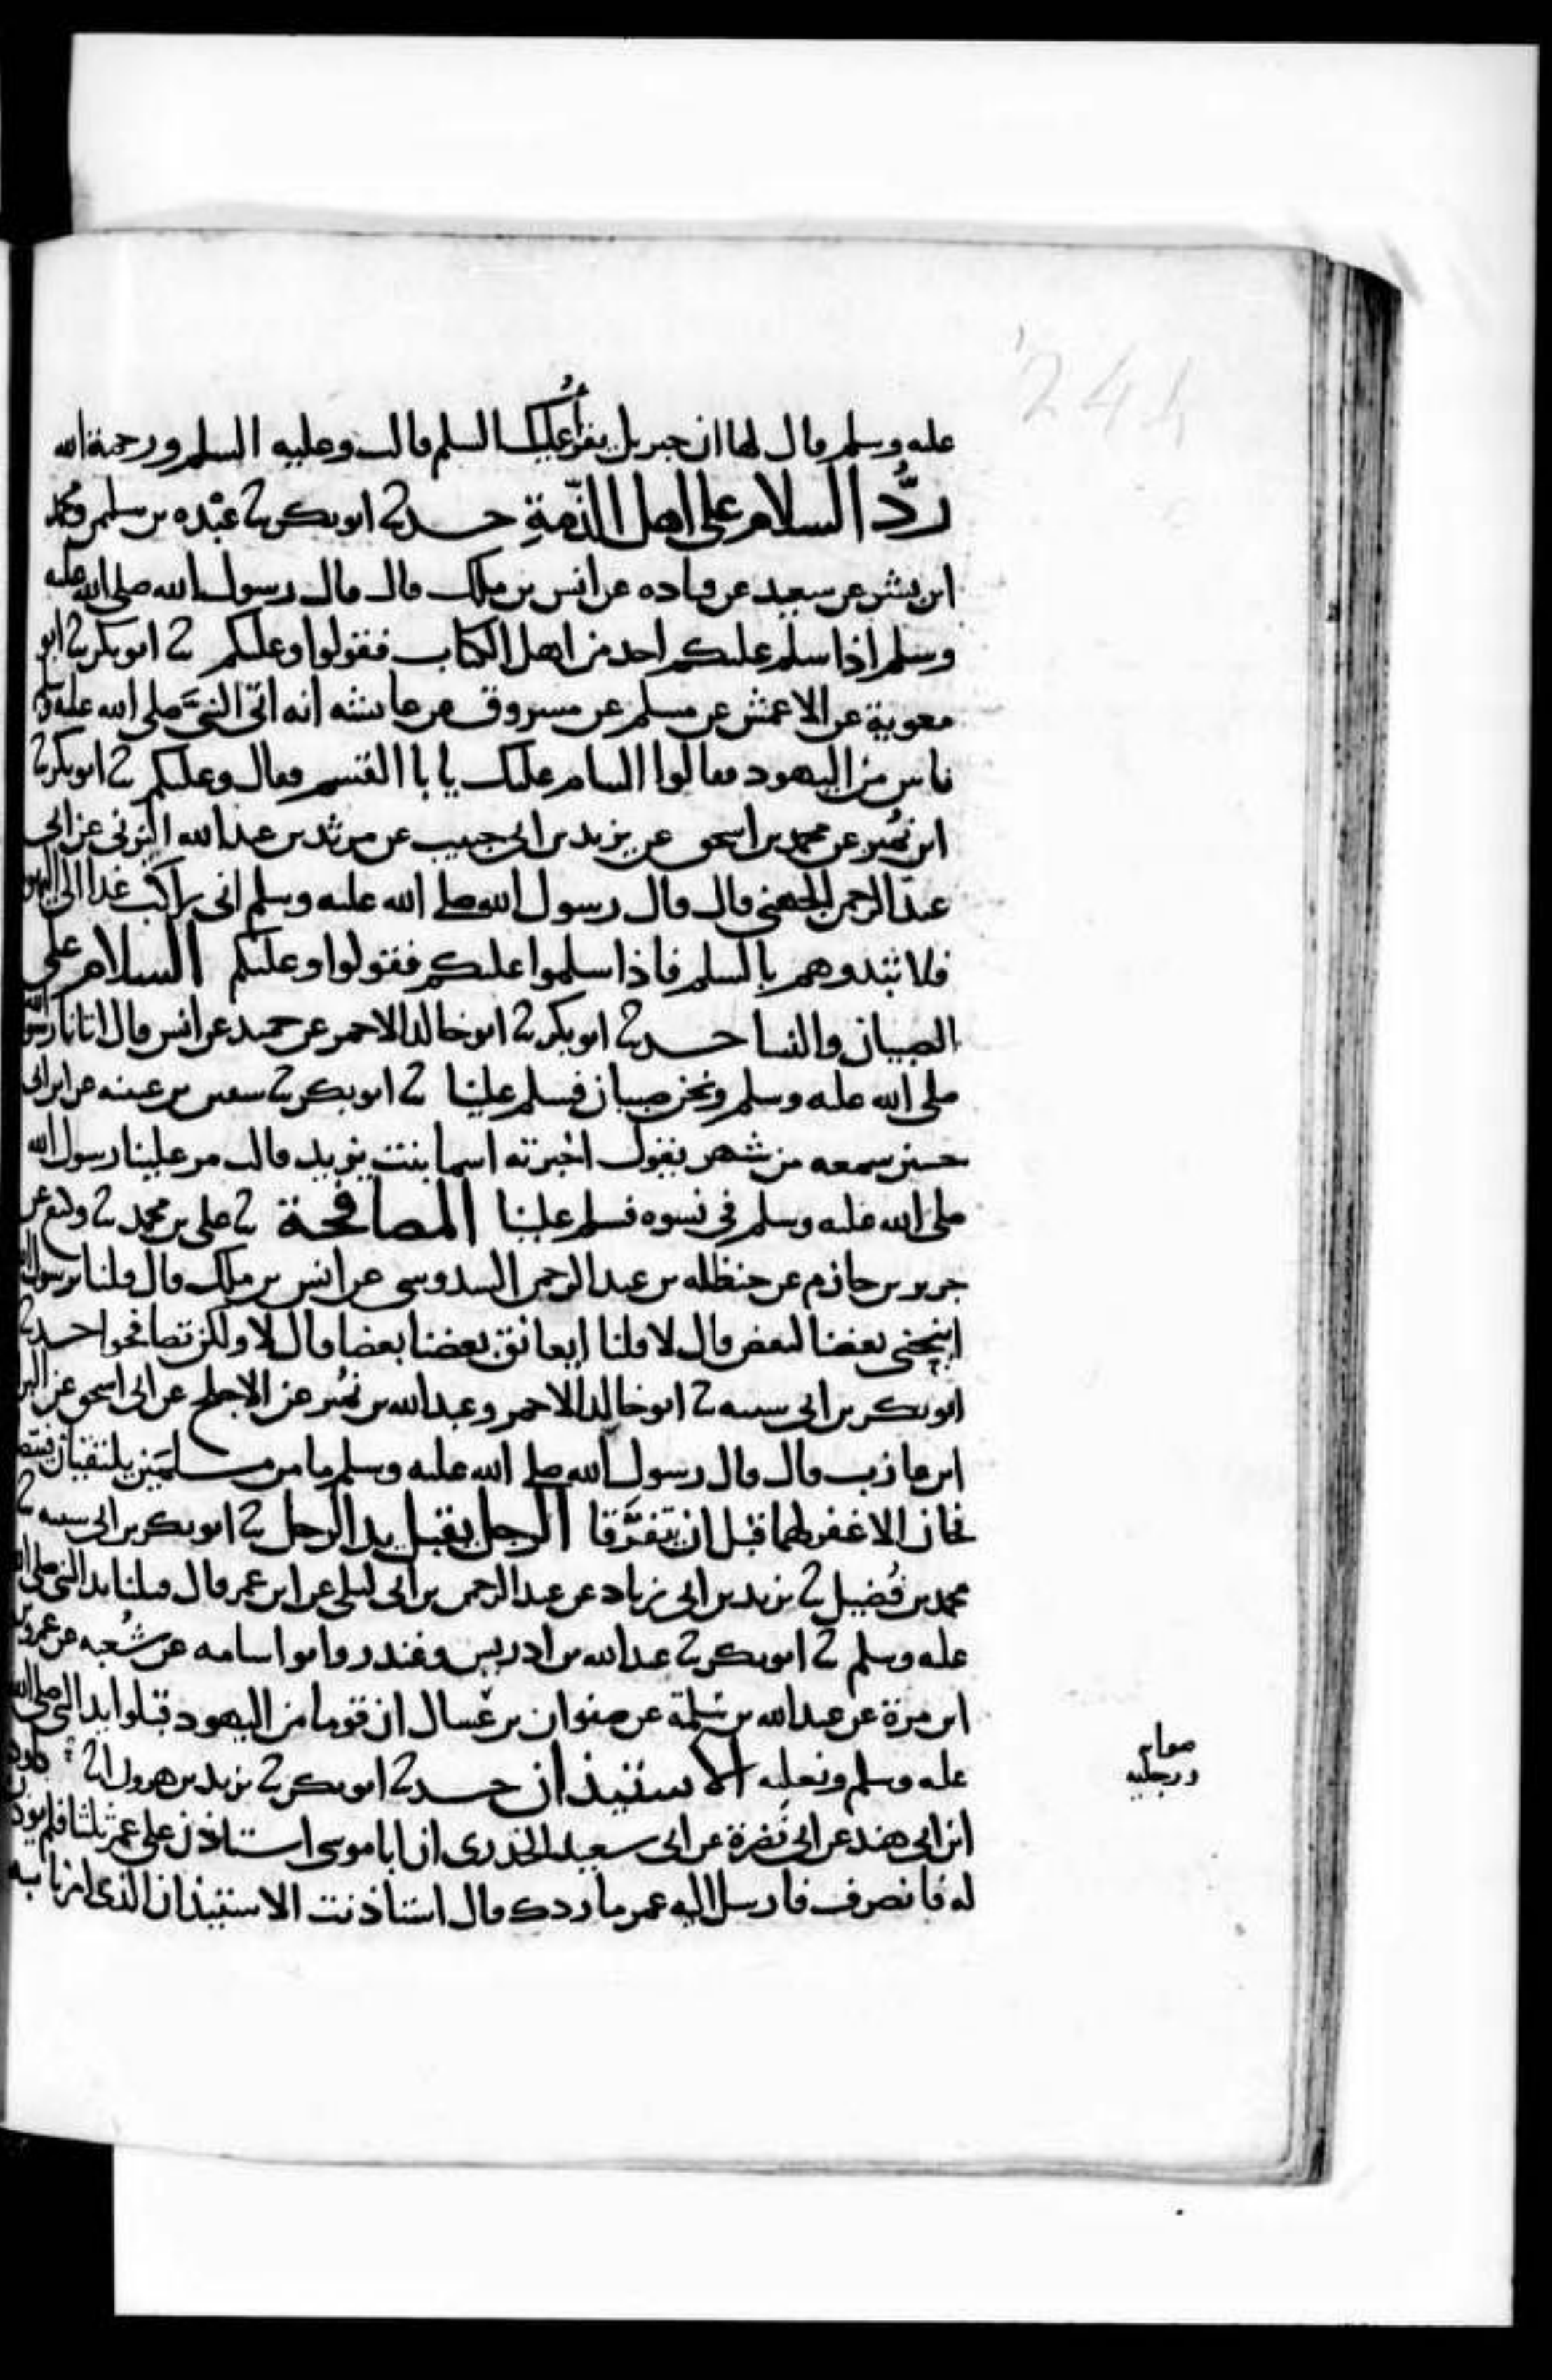 عليه وسلم قال لها ان جبريل يقرأ عليك السلم قالت وعليه السلم ورحمة الله
ردُّ السلام على اهل الذمّةِ حدثنا ابو بكر ثنا عبْده بن سليمن ومحمد
ابن بشر عن سعيد عن قتاده عن انس بن ملك قال قال رسول الله صلى الله عليه
وسلم اذا سلم عليكم احد من اهل الكتاب فقولوا وعليكم ثنا ابو بكر ثنا ابو
معوية عن الاعمش عن مسلم عن مسروق عن عائشه انه اتى النبيَّ صلى الله عليه وسلم
ناس من اليهود فقالوا السام عليك يا با القسم فقال وعليكم ثنا ابو بكر ثنا
ابن نمُير عن محمد بن اسحق عن يزيد بن ابى حبيب عن مرثد بن عبد الله اليزنى عن ابى
عبد الرحمن الجهنى قال قال رسول الله صلى الله عليه وسلم انى راكب غدا الى اليهود
فلا تبدوهم بالسلم فاذا سلموا عليكم فقولوا وعليكم السلام على
الصبيان والنسا حدثنا ابو بكر ثنا ابو خالد الاحمر عن حميد عن انس قال اتانا رسول الله
صلى الله عليه وسلم ونحن صبيان فسلم علينا ثنا ابو بكر ثنا سفين بن عيينه عن ابن ابى
حسين سمعه من شهر يقول اخبرته اسما بنت يزيد قالت مر علينا رسول الله
صلى الله عليه وسلم فى نسوه فسلم علينا المصافحة ثنا على بن محمد ثنا وكيع عن
جرير بن حازم عن حنظله بن عبد الرحمن السدوسى عن انس بن ملك قال قلنا يرسول الله
اينحنى بعضنا لبعض قال لا قلنا ايعانق بعضنا بعضا قال لا ولكن تصافحوا حدثنا
ابو بكر بن ابى شيبه ثنا ابو خالد الاحمر وعبد الله بن نمُير عن الاجلح عن ابى اسحق عن البرا
ابن عازب قال قال رسول الله صلى الله عليه وسلم ما من مسلمَين يلتقيان فيتصا
فحان الا غفر لهما قبل ان يتفرَّقا الرجل يقبل يد الرجل ثنا ابو بكر بن ابى شيبه ثنا
محمد بن فُضيل ثنا يزيد بن ابى زياد عن عبد الرحمن بن ابى ليلى عن ابن عمر قال قبلنا يد النبى صلى الله
عليه وسلم ثنا ابو بكر ثنا عبد الله بن ادريس وغندر وابو اسامه عن شُعبه عن عمرو
ابن مرة عن عبد الله بن سَلِمة عن صفوان بن عَسال ان قوما من اليهود قبلوا يد النبى صلى الله
عليه وسلم ونعليه الاستيذان حدثنا ابو بكر ثنا يزيد بن هرون انا داود
ابن ابى هند عن ابى نضرة عن ابى سعيد الخدرى ان ابا موسى استاذن على عمر ثلثا فلم يوذن
له فانصرف فارسل اليه عمر ما ردك قال استاذنت الاستيذان الذى امرنا به
صوابه
ورجليه
244